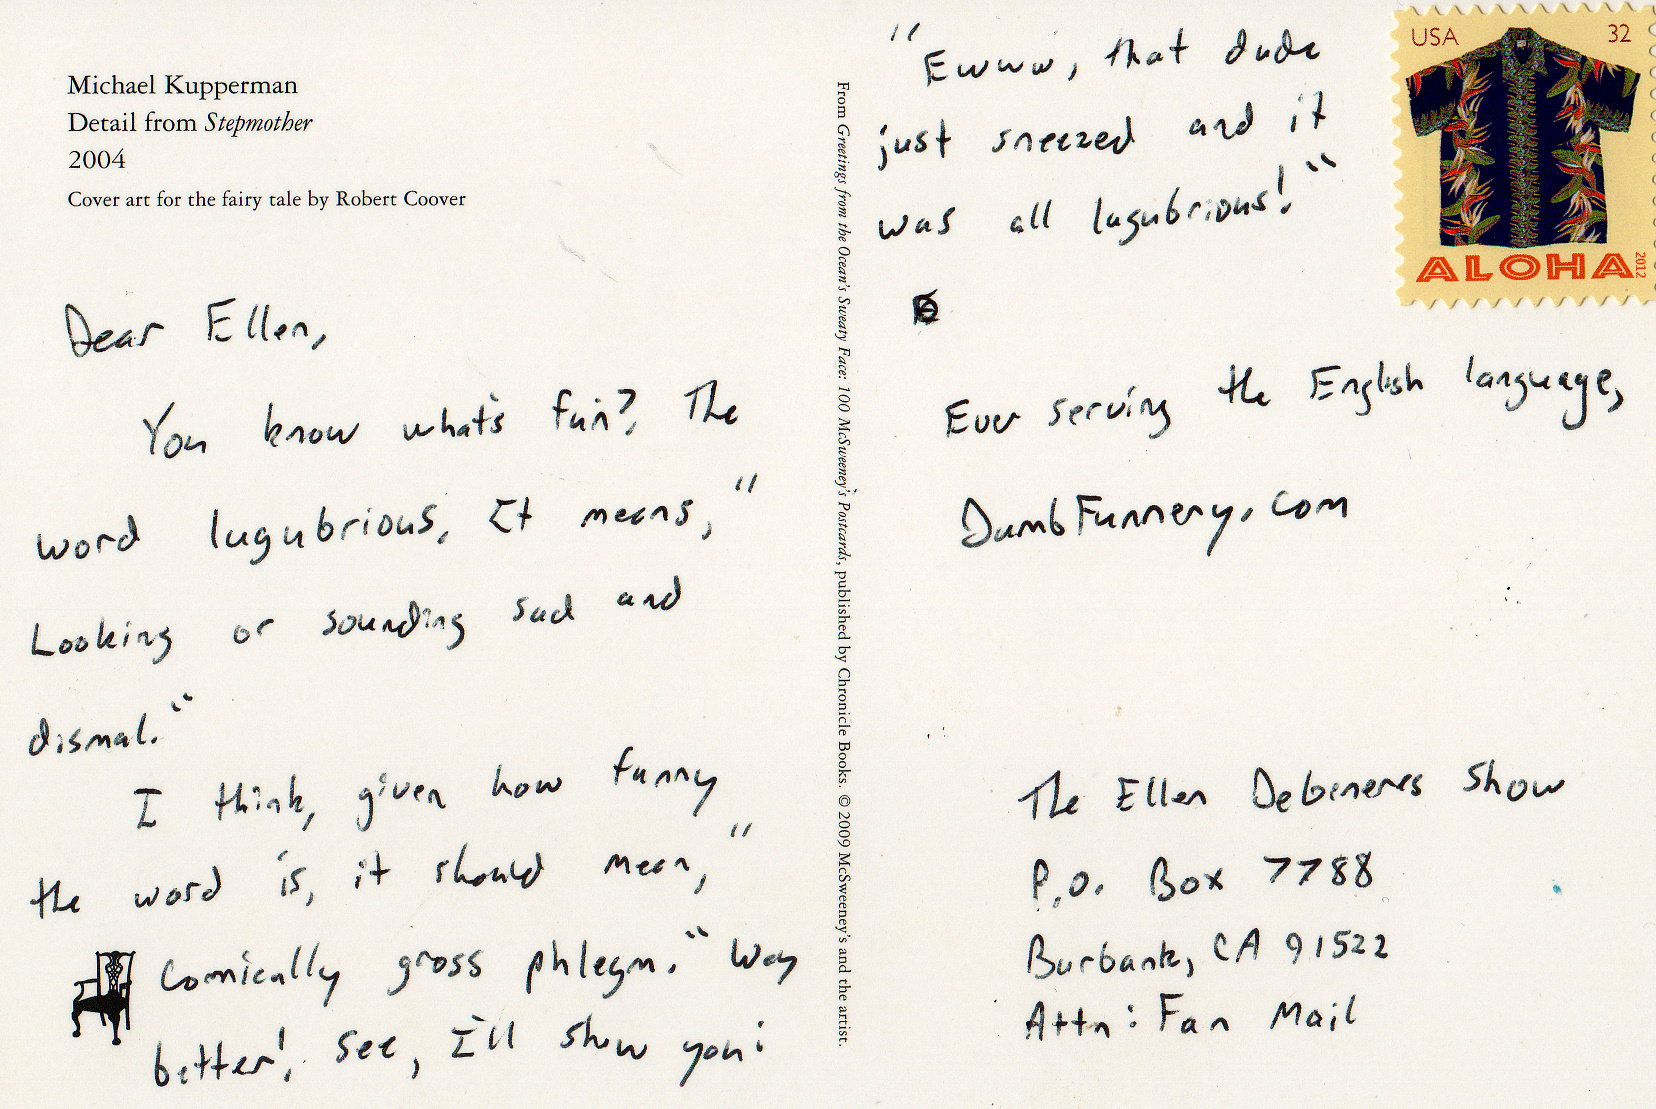 Michael Kupperman
Detail from Stepmother
2004
Cover art for the fairy tale by Robert Coover
Dear Ellen,
You know what's fun? The
word lugubrious. It means, "
Looking or sounding sad and
dismal."
I think, given how funny
the word is, it should mean, "
Comically gross phlegm." Way
better! See, I'll show you:
From Greetings from the Ocean's Sweaty Face: 100 McSweeney's Postcards, published by Chronicle Books. © 2009 McSweeney's and the artist.
"Ewww, that dude
just sneezed and it
was all lugubrious!"
Ever serving the English language,
DumbFunnery.com
USA 32
ALOHA
2012
The Ellen Degeneres Show
P.O. Box 7788
Burbank, CA 91522
Attn: Fan Mail